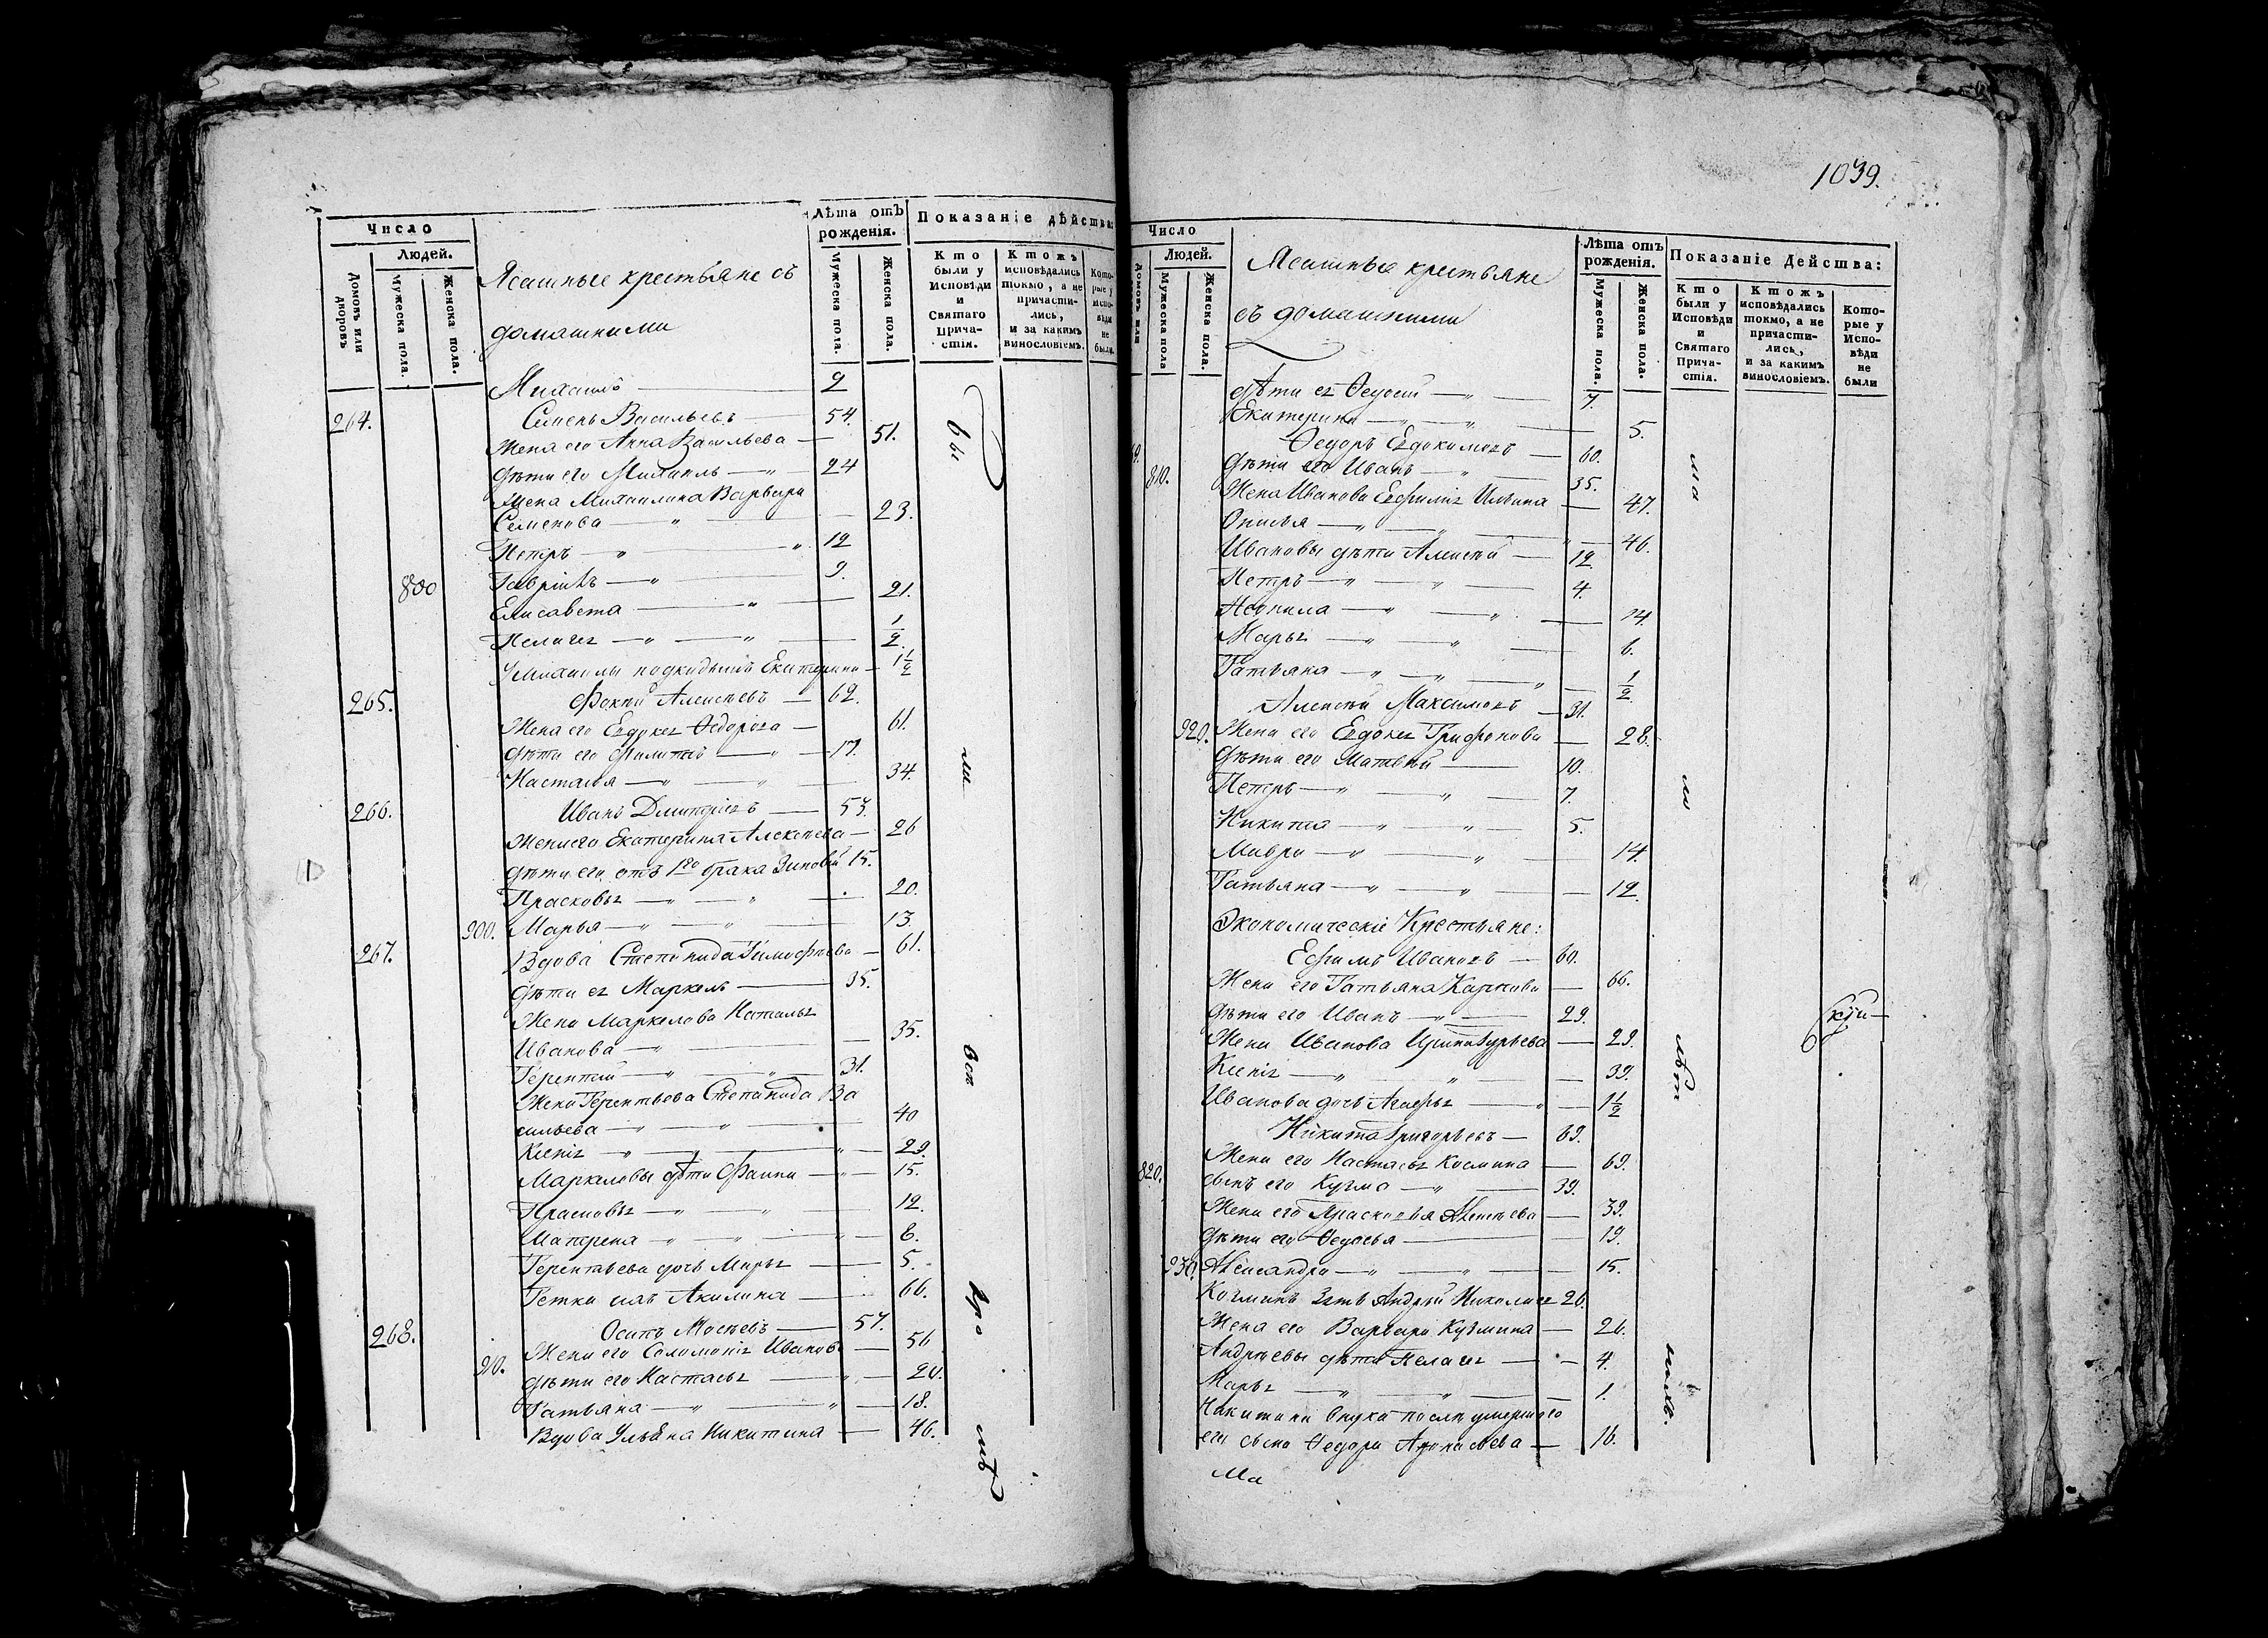 Число
Людей.
Домовъ или дворовъ
Мужеска пола.
Женска пола.
Ясашные крестьяне съ
домашними
Лѣта отъ рожденія.
Мужеска пола.
Женска пола.
Показаніе дѣйства:
Кто были у Исповѣди и Святаго Прича-стія.
Ктожъ исповѣдались токмо, а не причасти-лись, и за какимъ винословіемъ.
Кото-рые у Испо-вѣди не были.
Михаилъ 2
264. Семенъ Васильевъ 54.
Жена его Анна Васильева 51.
Дѣти его Михаилъ 24
Жена Михаилова Варвара
Семенова 23.
Петръ 12
800 Гаврiилъ 9.
Елисавета 21.
Пелагея 1/2.
У Михаилы подкидышъ Екатерина 1 1/2
265. Фокій Алексѣевъ 62.
Жена его Евдокея Ѳедорова 61.
Дѣти его Филиппъ 17.
Насталья 34.
266. Иванъ Дмитріевъ 53.
Жена его Екатерина Алексѣева 26
Дѣти его отъ 1го брака Зиновій 15.
Прасковья 20.
900. Марья 13
267. Вдова Степанида Тимофѣева 61.
Дѣти ея Маркелъ 35.
Жена Маркелова Наталья
Иванова 35.
Терентій 31.
Жена Терентьева Степанида Ва
сильева 40
Ксенія 29.
Маркеловы дѣти Фаина 15.
Прасковья 12.
Матрена 6.
Терентьева дочь Марья 5.
Тетка ихъ Акилина 66.
268. Осипъ Мосѣевъ 57.
Жена его Соломонія Иванова 56
910. Дѣти его Настасья 20.
Татьяна 18.
Вдова Ульяна Никитина 46.
1039.
Число
Людей.
Домовъ или
Мужеска пола
Женска пола.
Ясашные крестьяне
съ домашними
Лѣта отъ рожденія.
Мужеска пола.
Женска пола.
Показаніе Дейсшва:
Кто были у Исповѣди и Святаго Прича-стія.
Ктожъ исповѣдались токмо, а не причасти-лись, и за какимъ винословіемъ.
Кото-рые у Испо-вѣди не были
Дѣти ея Ѳедосій 7.
Екатерина 5.
Ѳедоръ Евдокимовъ 60.
810. Дѣти его Иванъ 35.
Жена Иванова Ефимія Ильина 47.
Онисья 46.
Ивановы дѣти Алексѣй 12
Петръ 4.
Неонила 14.
Марья 6.
Татьяна 1/2.
Алексѣй Максимовъ 31.
920. Жена его Евдокея Трифонова 28.
Дѣти его Матвѣй 10.
Петръ 7.
Никита 5.
Мавра 14.
Татьяна 12.
Экономическіе Крестьяне:
Ефимъ Ивановъ 60.
Жена его Татьяна Карпова 66.
Дѣти его Иванъ 29.
Жена Иванова Гурьева 29.
Ксенія 39.
Иванова дочь Агафья 1 1/2
Никита Григорьевъ 69.
Жена его Настасья Космина 69.
820. сынъ его Кузма 39.
Жена его Прасковья Алексѣева 39.
Дѣти его Ѳедосья 19.
930. Александра 15.
Козминъ Зять Андрей Николаевъ 26.
Жена его Варвара Кузмина 26.
Андреевы дѣти Пелагея 4.
Марья 1.
Никитина внука послѣ умершаго
его сына Ѳедора 16.
Ма